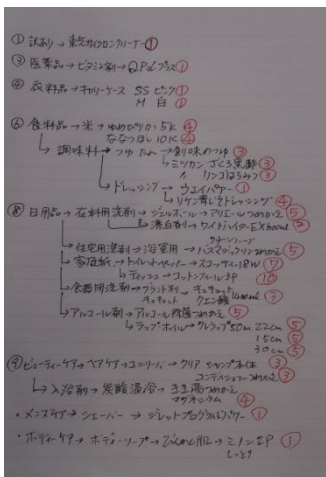 ① 訳あり→東芝サイクロンクリーナー①
③ 医薬品→ビタミン剤→QPαプラス①
④ 衣料品→キャリーケース SS ピンク①
M 白①
⑥ 食料品→米→ゆめぴりか5K④
ななつぼし10K④
→調味料→つゆ・たれ→創味のつゆ③
→ミツカン ざくろ黒酢③
〃 リンゴはちみつ③
→ドレッシング→ウエイパァー①
→リケン 青じそドレッシング④
⑧ 日用品→衣料用洗剤→ジェルボール→アリエールつめかえ⑤
→漂白剤→ワイドハイターEX
→住宅用洗剤→浴室用→バスマジックリンつめかえ⑤
→家庭紙→トイレットペーパー→スコッティー18W⑦
→ティッシュ→コットンフィール3P⑩
→食器用洗剤→ブランド別→キュキュット
キュキュット クエン酸③
→アルコール剤→アルコール除菌つめかえ⑤
→ラップホイル→クレラップ50m 22cm⑤
15cm⑤
30cm⑤
⑨ ビューティーケア→ヘアケア→ユニリーバ→クリア シャンプ本体③
コンディショナーつめかえ③
→入浴剤→炭酸湯浴→きき湯つめかえ
マグネシウム④
・メンズケア→シェーバー→ジレットプログライドパワー①
・ボディーケア→ボディーソープ→びんかん肌→ミノン2P①
しっとり